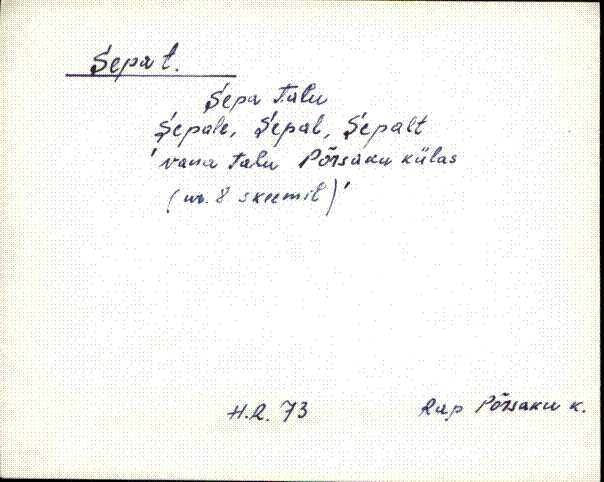 Śepa t.
Śepa talu
Śepale, Śepal, Śepalt
'vana talu Põrsaku külas
(nr. 8 skeemil)'
H.R. 73 Rap Põrsaku k.